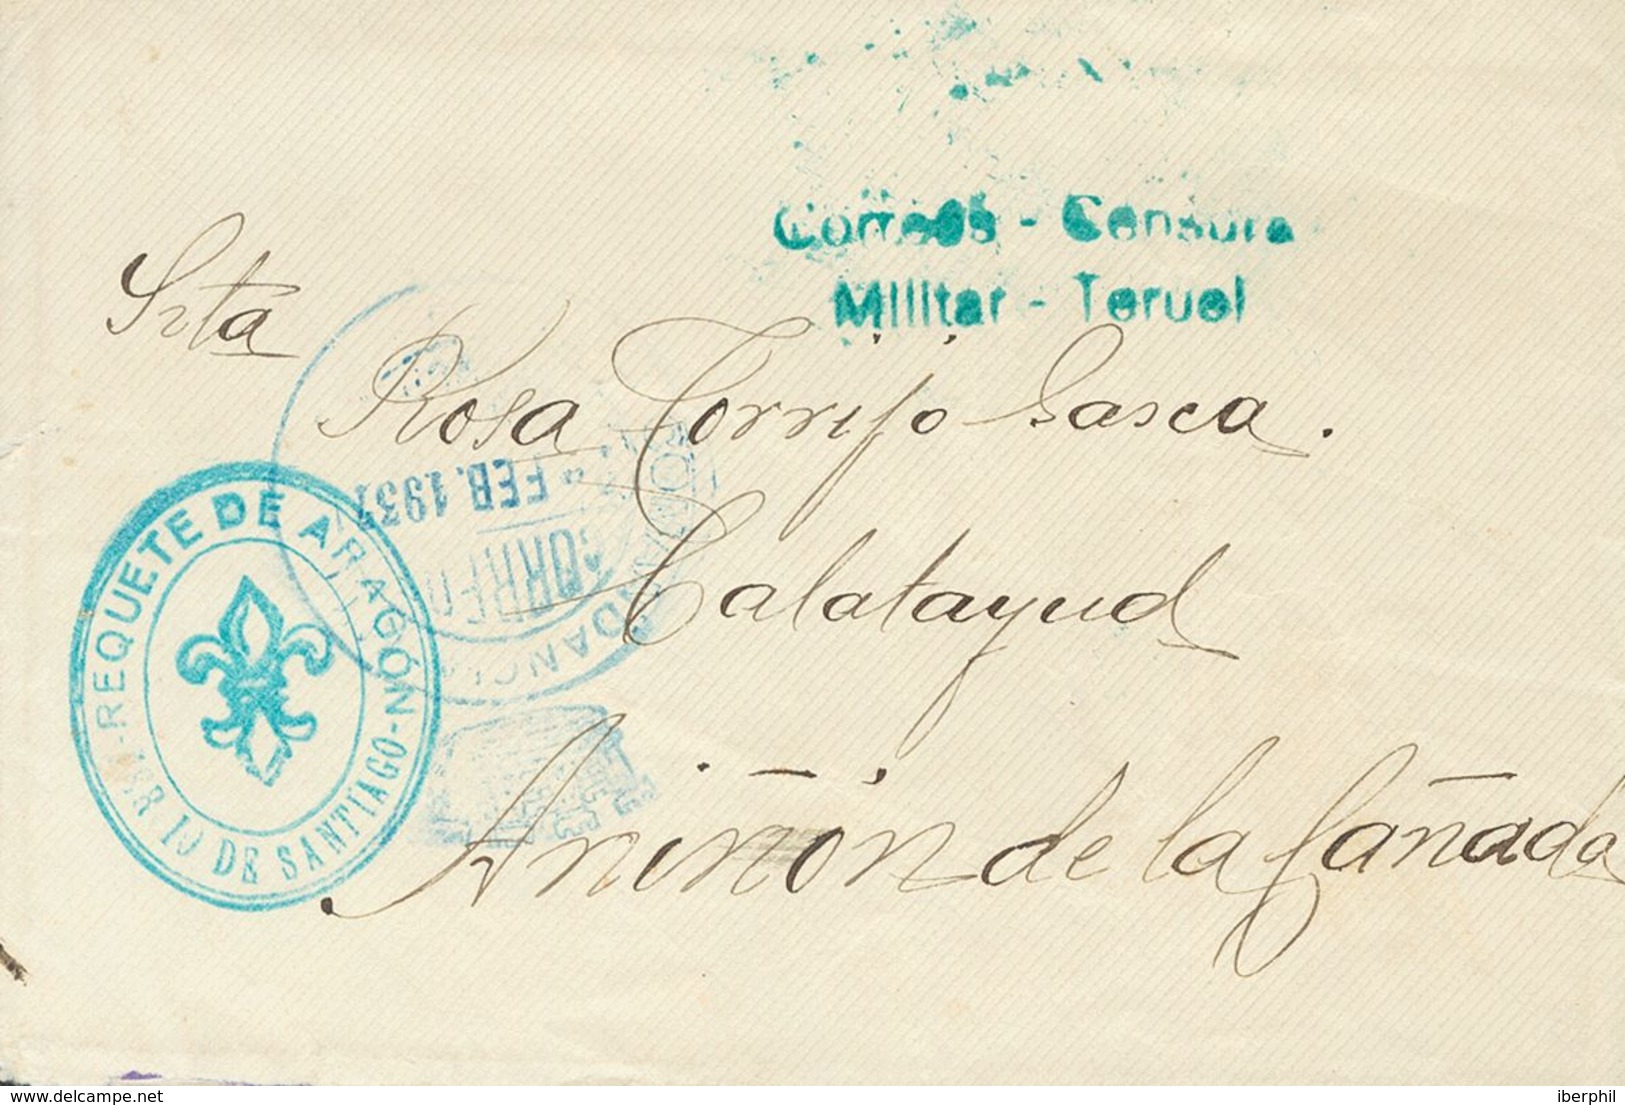 Correos - Censura
Militar - Teruel
Srta
Rosa Torrijo Gasca.
Calatayud
Aniñón de la Cañada
FEB. 1937
CORREO
REQUETE DE ARAGÓN
DE SANTIAGO
delcampe.net
iberphil